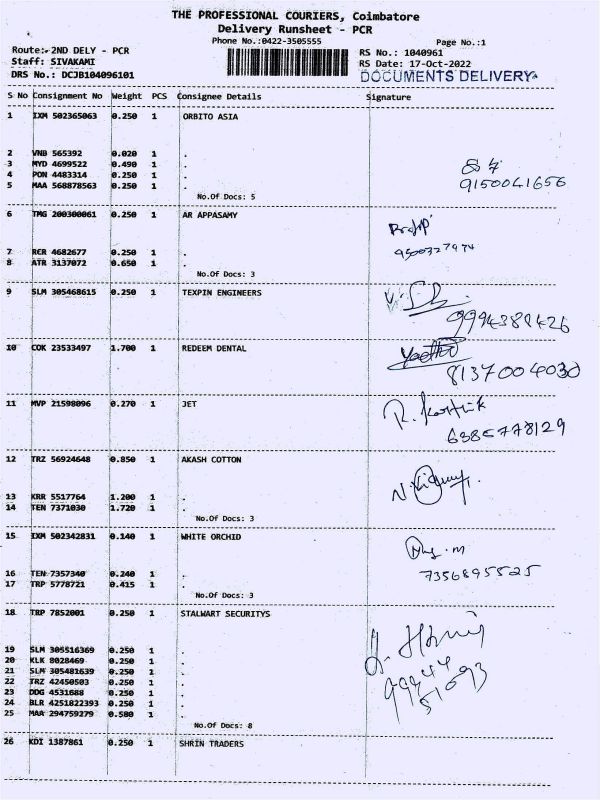 THE PROFESSIONAL COURIERS, Coimbatore
Delivery Runsheet - PCR
Phone No.:0422-3505555
Page No.:1
Route:-2ND DELY - PCR
RS No.: 1040961
Staff: SIVAKAMI
RS Date: 17-Oct-2022
DRS No.: DCJB104096101
DOCUMENTS DELIVERY
S No Consignment No Weight PCS Consignee Details Signature
1 IXM 502365063 0.250 1 ORBITO ASIA
2 VNB 565392 0.020 1 .
3 MYD 4699522 0.490 1 .
4 PON 4483314 0.250 1 .
5 MAA 568878563 0.250 1 .
9150041656
No.Of Docs: 5
6 TMG 200300061 0.250 1 AR APPASAMY
7 RER 4682677 0.250 1 .
8 ATR 3137072 0.650 1 .
No.Of Docs: 3
9 SLM 305468615 0.250 1 TEXPIN ENGINEERS
9994384426
10 COK 23533497 1.700 1 REDEEM DENTAL
8137004030
11 MVP 21598096 0.270 1 JET
R. Karthik
6385778129
12 TRZ 56924648 0.850 1 AKASH COTTON
13 KRR 5517764 1.200 1 .
14 TEN 7371030 1.720 1 .
No.Of Docs: 3
15 IXM 502342831 0.140 1 WHITE ORCHID
16 TEN 7357340 0.240 1 .
7356895525
17 TRP 5778721 0.415 1 .
No.Of Docs: 3
18 TRP 7852001 0.250 1 STALWART SECURITYS
19 SLM 305516369 0.250 1 .
20 KLK 8028469 0.250 1 .
21 SLM 305481639 0.250 1 .
22 TRZ 42450503 0.250 1 .
23 DDG 4531688 0.250 1 .
24 BLR 4251822393 0.250 1 .
25 MAA 294759279 0.580 1 .
99444
51093
No.Of Docs: 8
26 KDI 1387861 0.250 1 SHRIN TRADERS